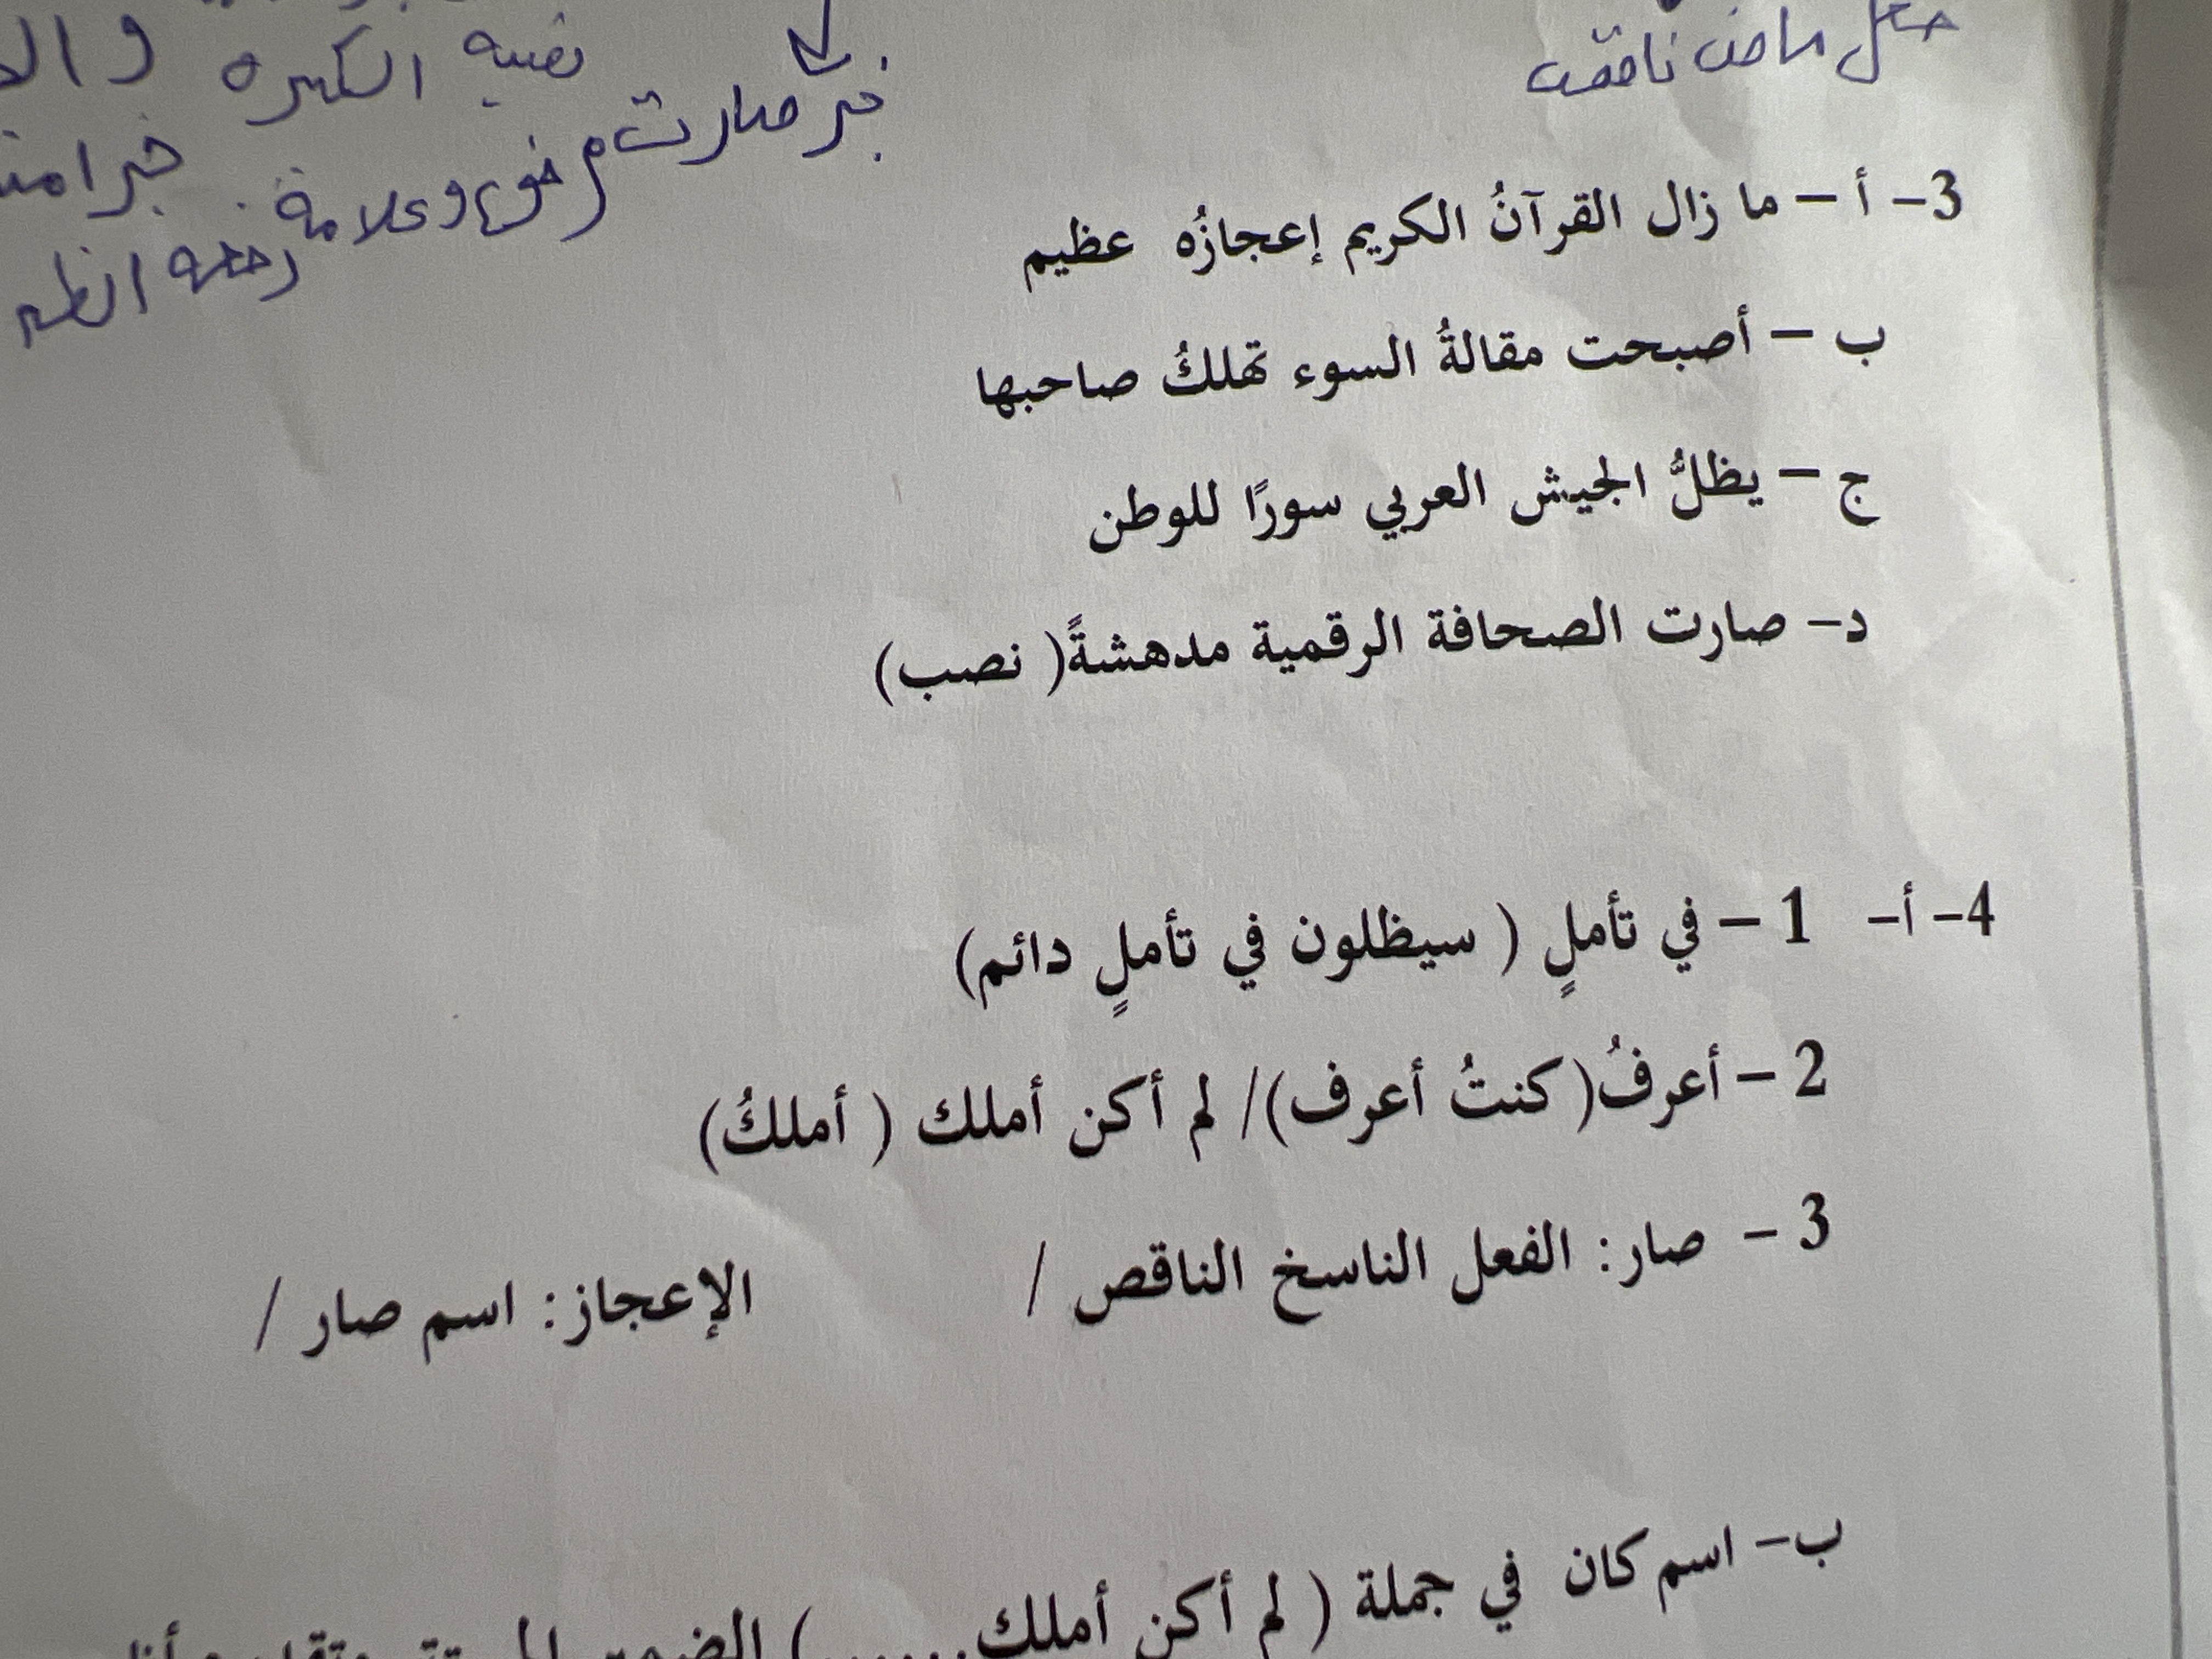 فعل ماض ناقص
نصبه الكسره
خبر صارت مرفوع وعلامة رفعه
3- أ – ما زال القرآنُ الكريم إعجازُه عظيم
ب – أصبحت مقالةُ السوء تهلكُ صاحبها
ج – يظلُّ الجيش العربي سورًا للوطن
د- صارت الصحافة الرقمية مدهشةً( نصب)
4- أ- 1 – في تأملٍ ( سيظلون في تأملٍ دائم)
2 – أعرفُ( كنتُ أعرف)/ لم أكن أملك ( أملكُ)
3 - صار: الفعل الناسخ الناقص / الإعجاز: اسم صار /
ب- اسم كان في جملة ( لم أكن أملك......) الضمير